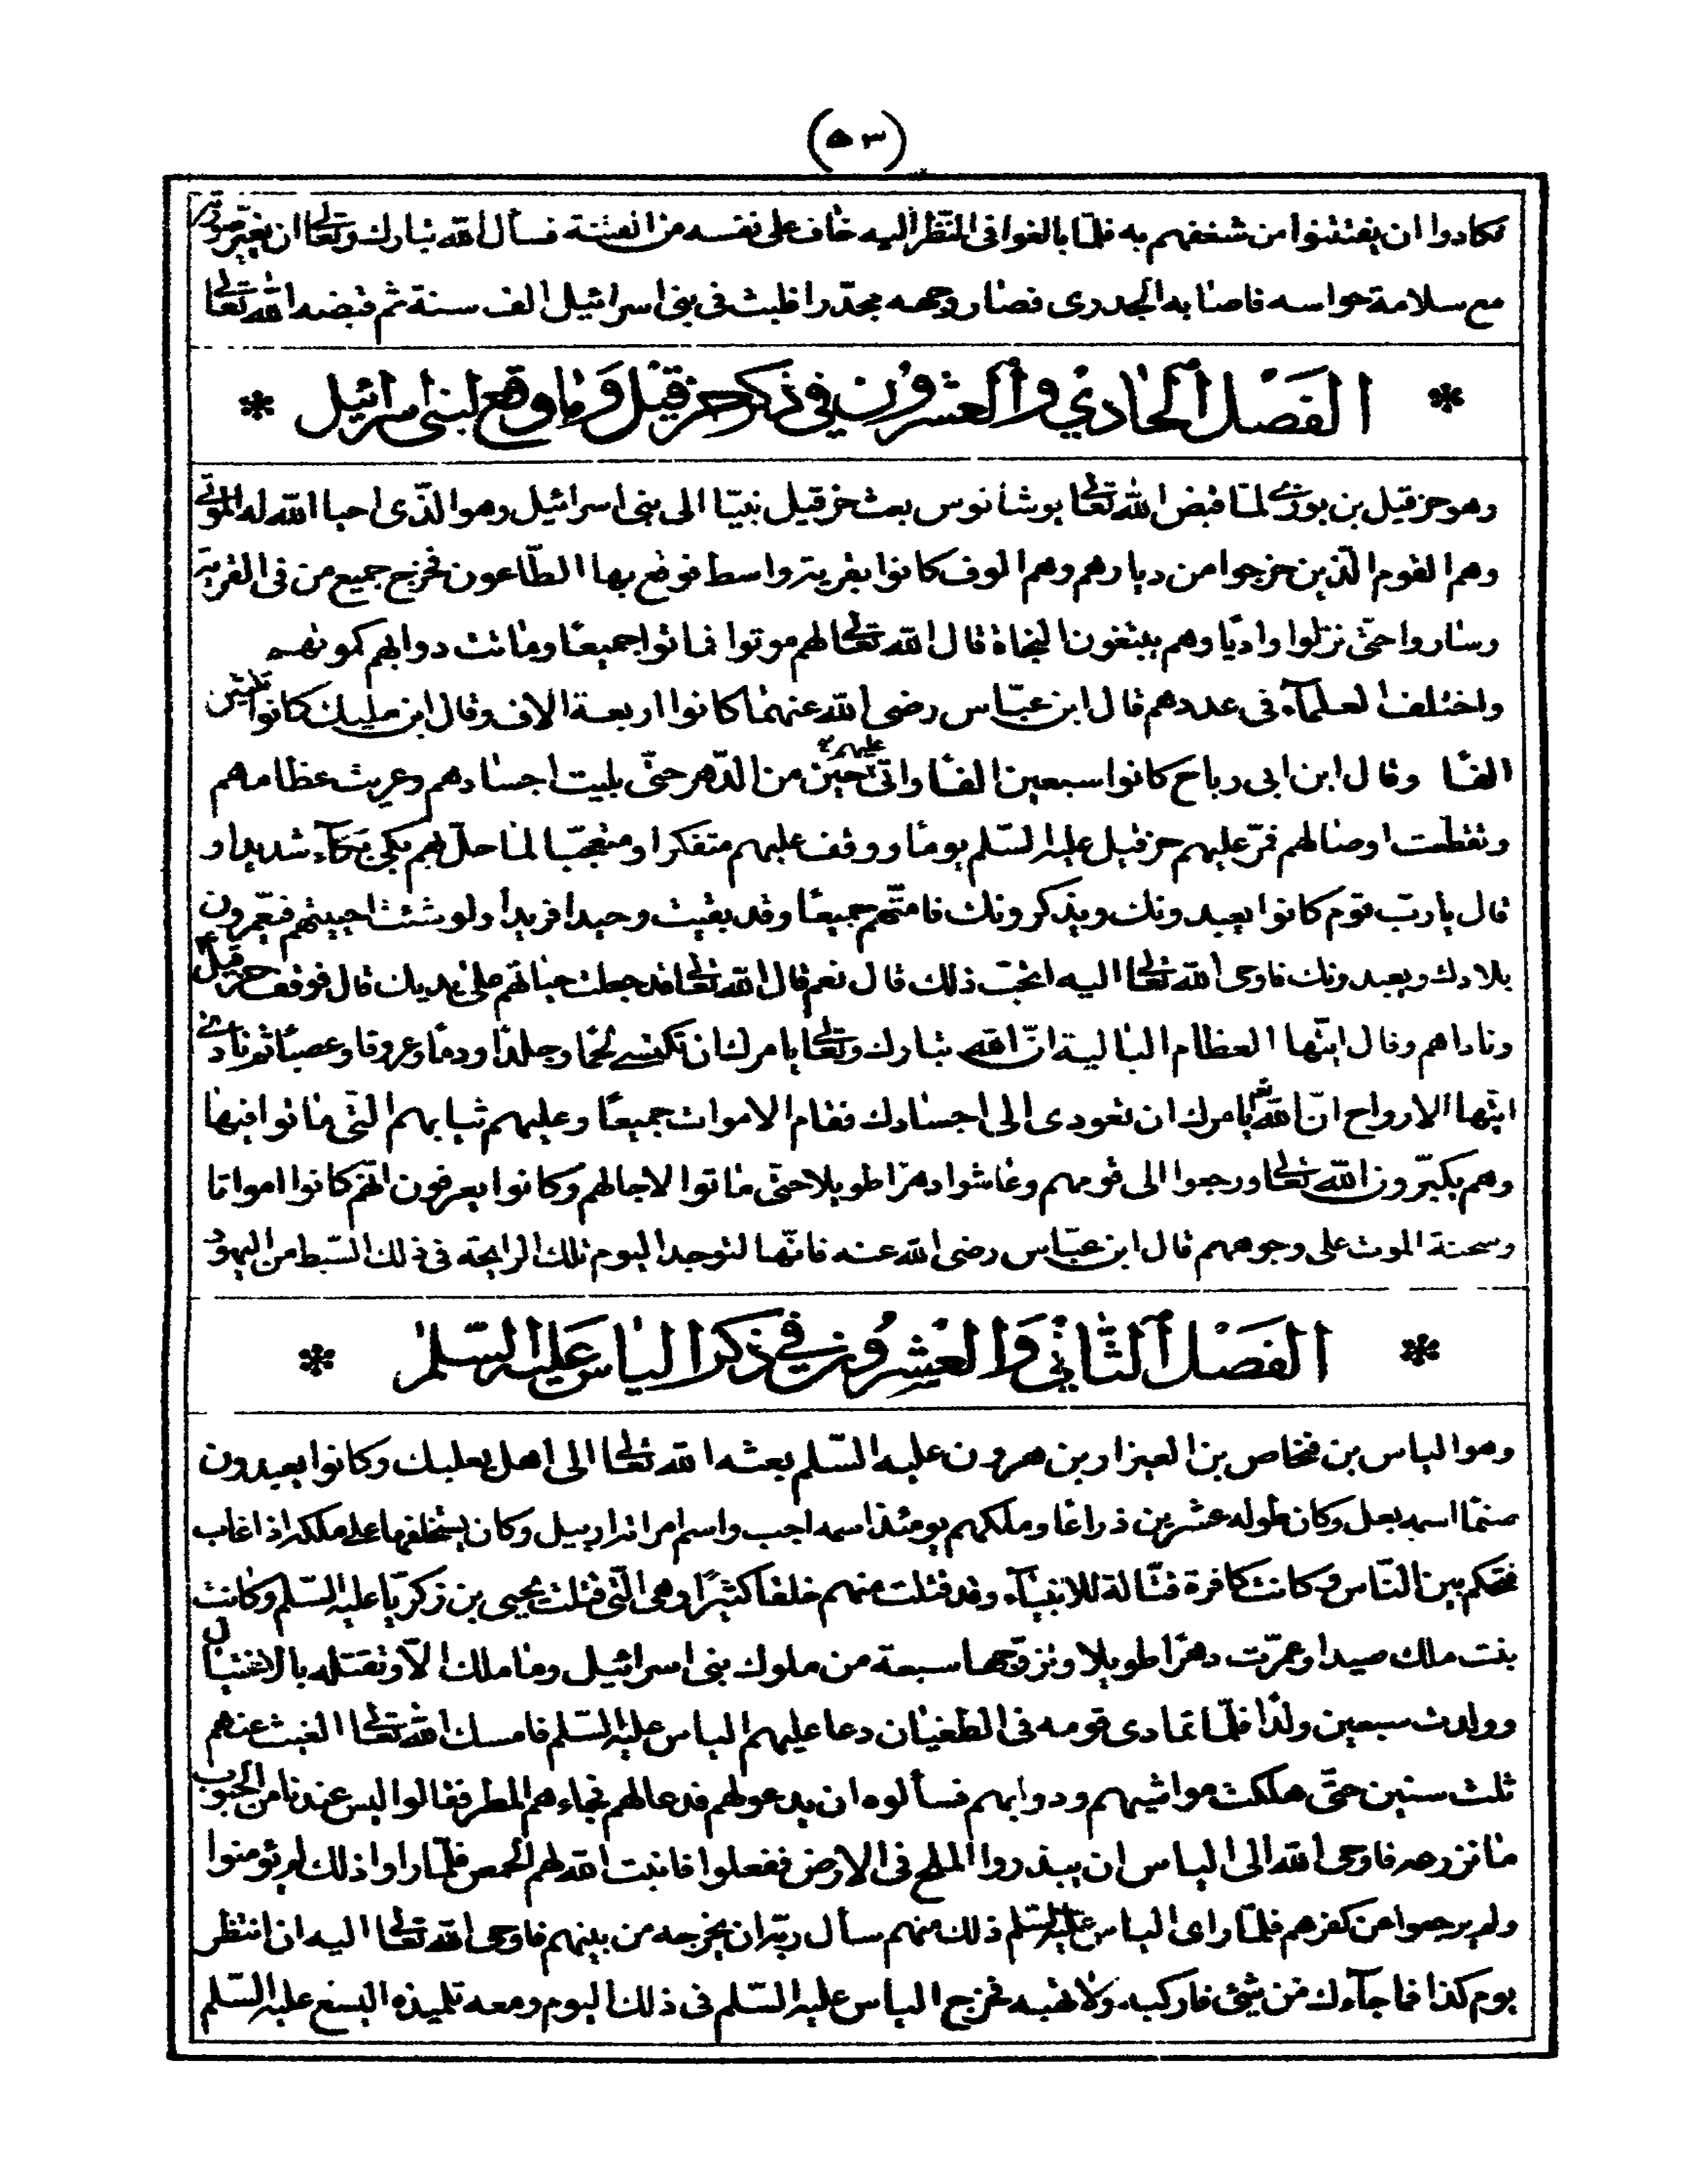 (٥٣)
تكادوا ان يفتتنوا من شغفهم به فلما بالغوا فى النظر اليه خاف على نفسه من الفتنة فسأل الله تبارك وتعالى ان يغير صورته
مع سلامة حواسه فاصابه الجدرى فصار وجهه مجدرا فلبث فى بنى اسرائيل الف سنة ثم قبضه الله تعالى
* الفصل الحادي والعشرون في ذكر حزقيل وما وقع لبنى اسرائيل *
وهو حزقيل بن بوزى لما قبض الله تعالى يوشانوس بعث حزقيل نبيا الى بنى اسرائيل وهو الذى احيا الله له الموتى
وهم القوم الذين خرجوا من ديارهم وهم الوف كانوا بقرية واسط فوقع بها الطاعون فخرج جميع من فى القرية
وساروا حتى نزلوا واديا وهم يبتغون النجاة قال الله تعالى لهم موتوا فماتوا جميعا وماتت دوابهم كموتهم
واختلف العلماء فى عددهم قال ابن عباس رضى الله عنهما كانوا اربعة الاف وقال ابن مليك كانوا ثلثين
الفا وقال ابن ابى رباح كانوا سبعين الفا واتى عليهم حين من الدهر حتى بليت اجسادهم وعريت عظامهم
وتقطعت اوصالهم فمر عليهم حزقيل عليه السلم يوما ووقف عليهم متفكرا ومتعجبا لما حل بهم بكى بكاء شديدا و
قال يا رب قوم كانوا يعبدونك ويذكرونك فامتهم جميعا وقد بقيت وحيدا فريدا ولو شئت احييتهم فيعمرون
بلادك ويعبدونك فاوحى الله تعالى اليه اتحب ذلك قال نعم قال الله تعالى قد جعلت حياتهم على يديك قال فوقف حزقيل
وناداهم وقال ايتها العظام البالية ان الله تبارك وتعالى يامرك ان تكتسى لحما وجلدا ودما وعروقا وعصبا ثم نادى
ايتها الارواح ان الله يامرك ان تعودى الى اجسادك فقام الاموات جميعا وعليهم ثيابهم التى ماتوا فيها
وهم يكبرون الله تعالى ورجعوا الى قومهم وعاشوا دهرا طويلا حتى ماتوا لاجالهم وكانوا يعرفون انهم كانوا امواتا
وسحنة الموت على وجوههم قال ابن عباس رضى الله عنه فانها لتوجد اليوم تلك الرايحة فى ذلك السبط من اليهود
* الفصل الثاني والعشرون في ذكر الياس عليه السلم *
وهو الياس بن فخاص بن العيزار بن هرون عليه السلم بعثه الله تعالى الى اهل بعلبك وكانوا يعبدون
صنما اسمه بعل وكان طوله عشرين ذراعا وملكهم يومئذ اسمه اجب واسم امراته اربيل وكان يستخلفها على ملكه اذا غاب
فتحكم بين الناس وكانت كافرة قتالة للانبياء وقد قتلت منهم خلقا كثيرا وهى التى قتلت يحيى بن زكريا عليه السلم وكانت
بنت ملك صيدا وعمرت دهرا طويلا وتزوجها سبعة من ملوك بنى اسرائيل وما ملك الا وتقتله بالاغتيال
وولدت سبعين ولدا فلما تمادى قومه فى الطغيان دعا عليهم الياس عليه السلم فامسك الله تعالى الغيث عنهم
ثلث سنين حتى هلكت مواشيهم ودوابهم فسألوه ان يدعو لهم فدعا لهم فجاءهم المطر فقالوا ليس عندنا من الحبوب
ما نزرعه فاوحى الله الى الياس ان يبذروا الملح فى الارض ففعلوا فانبت الله لهم الحمص فلما راوا ذلك لم يؤمنوا
ولم يرجعوا عن كفرهم فلما راى الياس عليه السلم ذلك منهم سأل ربه ان يخرجه من بينهم فاوحى الله تعالى اليه ان انتظر
يوم كذا فما جاءك من شئ فاركبه ولا تهبه فخرج الياس عليه السلم فى ذلك اليوم ومعه تلميذه اليسع عليه السلم